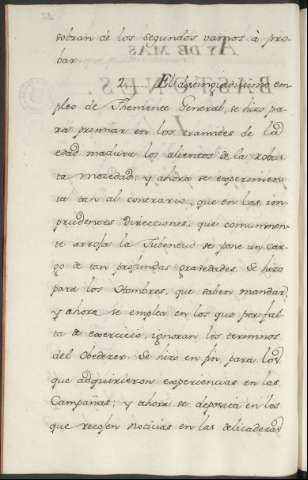 sobran de los segundos vamos à pro
bar.
2. El distinguidissimo em
pleo de Theniente General, se hizo pa
ra premiar en los tramites de la
edad madura los alientos de la robus
ta mocedad; y ahora se experimen
ta tan al contrario, que en las im
prudentes direcciones, que comunmen
te arroja la Jubentud se pone un car
go de tan profundas gravedades. Se hizo
para los Hombres, que saben mandar,
y ahora se emplea en los que por fal
ta de exercicio, ignoran los terminos
del obedezer. Se hizo en fin, para los
que adquirieron experiencias en las
Campañas; y ahora se deposita en los
que recojen noticias en las delicadezas